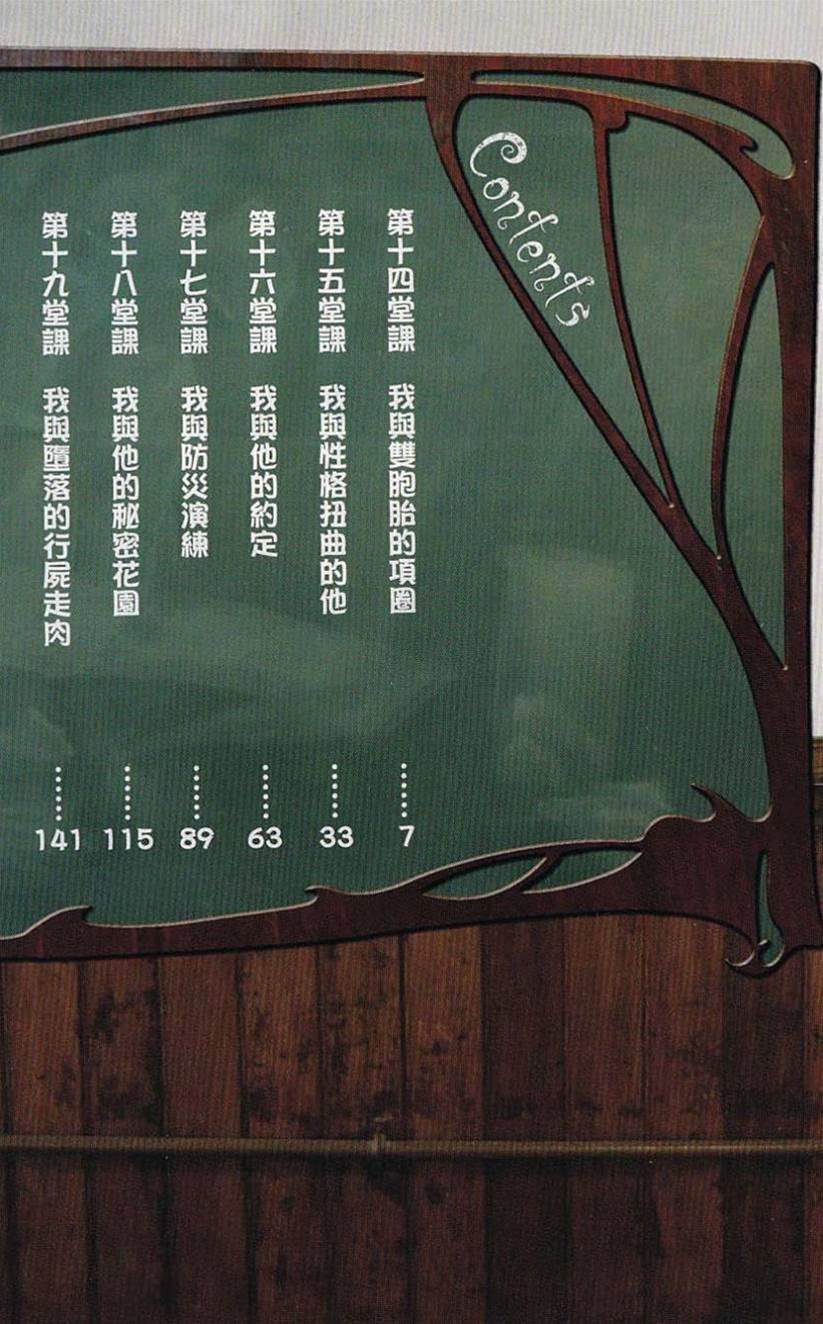 Contents
第十四堂課　我與雙胞胎的項圈……7
第十五堂課　我與性格扭曲的他……33
第十六堂課　我與他的約定……63
第十七堂課　我與防災演練……89
第十八堂課　我與他的秘密花園……115
第十九堂課　我與墮落的行屍走肉……141